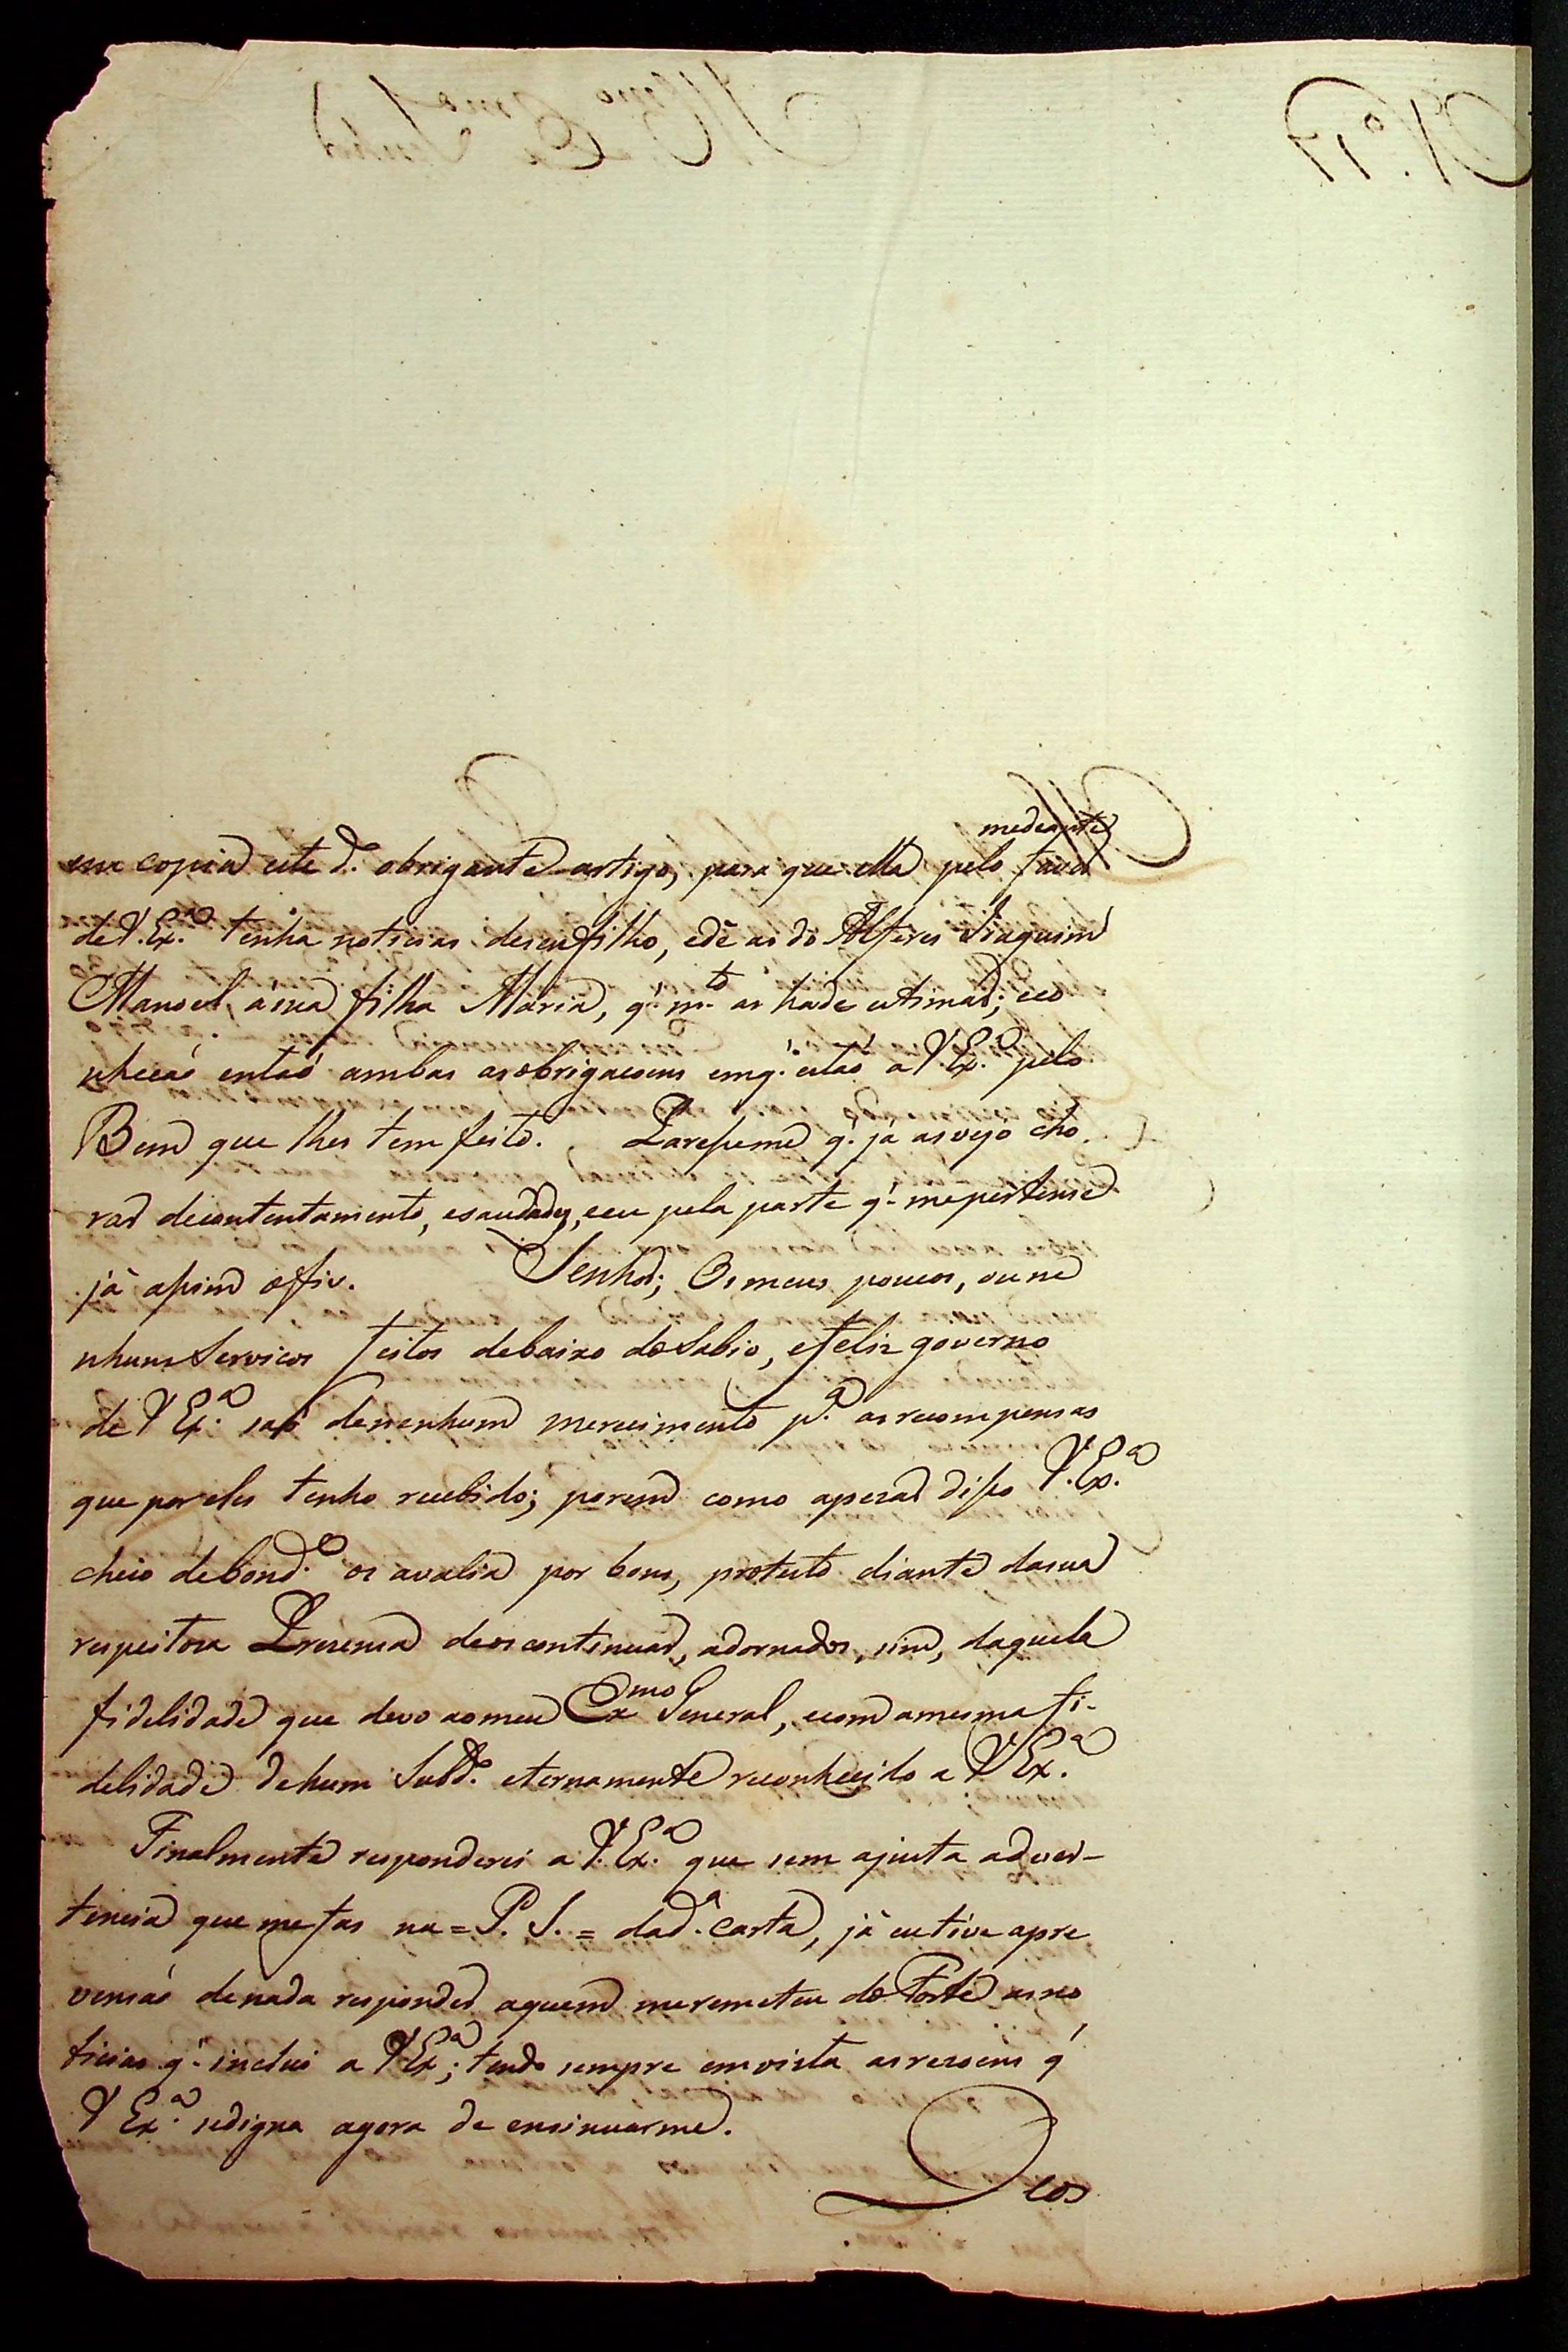 mediante
em copia este d.º obrigante artigo, para que ella pelo favor
de V. Ex.ª tenha noticias deseufilho, edê as do Alferes Joaquim
Manoel, ásua filha Maria, q.' m.to as hade estimar; eco
nheção entaõ ambas asobrigacoens emq.' estaõ a V. Ex.ª pelo
Bem que lhes tem feito. Pareseme q.' já asvejo cho
rar decontentamento, esaudades, eeu pela parte q.' mepertense
já assim ofiz. Senhor; Osmeus poucos, oune
nhuns Servicos feitos debaixo doSabio, efelis governo
de V Ex.ª saõ denenhum merecimento p.ª asrecompensas
que poreles tenho recebido; porem como apezar disso V. Ex.ª
cheio debond.e os avalia por bons, protesto diante dasua
respeitosa Presensa deoscontinuar, adornados, sim, daquela
fidelidade que devo aomeu Ex.mo General, ecom amesma fi-
delidade dehum Subd.º eternamente reconhecido a V Ex.ª
Finalmente responderei a V. Ex.ª que sem ajusta adver-
tencia que mefas na = P. S. = dad.ª carta, já eutive apre
vensaõ denada responder aquem meremeteu do Forte asno
ticias q.' incluî a V Ex.ª; tendo sempre emvista asrezoens q'
V Ex.ª sedigna agora de ensinuarme.
Deos